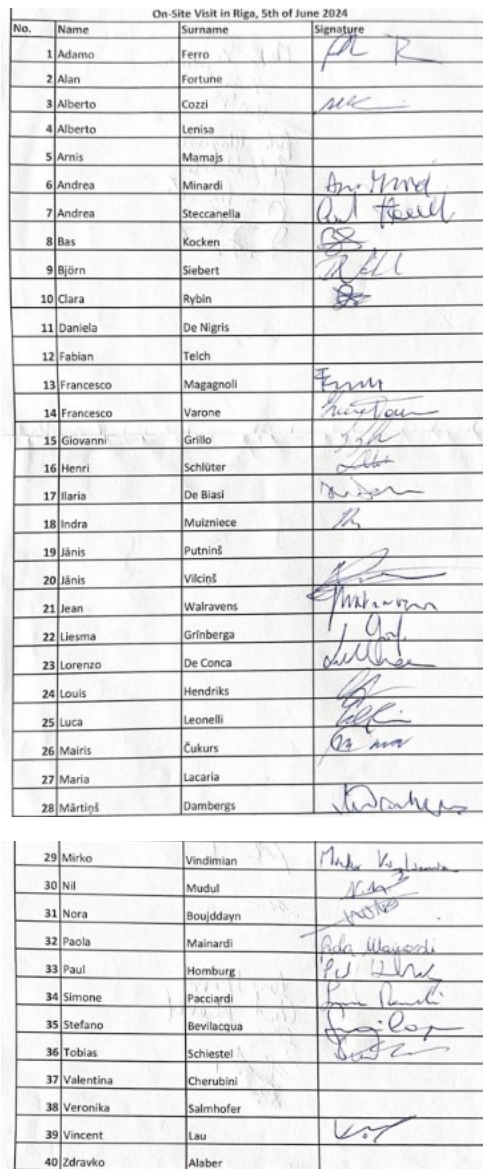 On-Site Visit in Riga, 5th of June 2024
No. Name Surname Signature
1 Adamo Ferro
2 Alan Fortune
3 Alberto Cozzi
4 Alberto Lenisa
5 Arnis Mamajs
6 Andrea Minardi
7 Andrea Steccanella
8 Bas Kocken
9 Björn Siebert
10 Clara Rybin
11 Daniela De Nigris
12 Fabian Telch
13 Francesco Magagnoli
14 Francesco Varone
15 Giovanni Grillo
16 Henri Schlüter
17 Ilaria De Biasi
18 Indra Muizniece
19 Jānis Putniņš
20 Jānis Vilciņš
21 Jean Walravens
22 Liesma Grīnberga
23 Lorenzo De Conca
24 Louis Hendriks
25 Luca Leonelli
26 Mairis Čukurs
27 Maria Lacaria
28 Mārtiņš Dambergs
29 Mirko Vindimian
30 Nil Mudul
31 Nora Boujddayn
32 Paola Mainardi Paola Mainardi
33 Paul Homburg
34 Simone Pacciardi
35 Stefano Bevilacqua
36 Tobias Schiestel
37 Valentina Cherubini
38 Veronika Salmhofer
39 Vincent Lau
40 Zdravko Alaber